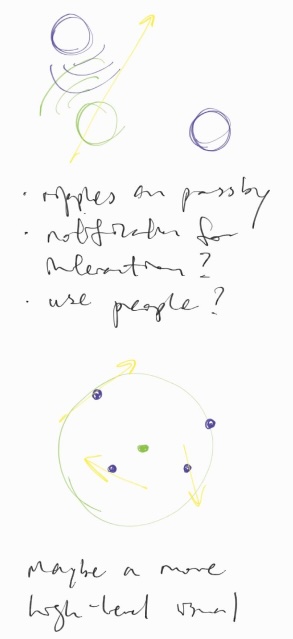 · ripples on passby
· notification for
interaction?
· use people?
Maybe a more
high-level visual